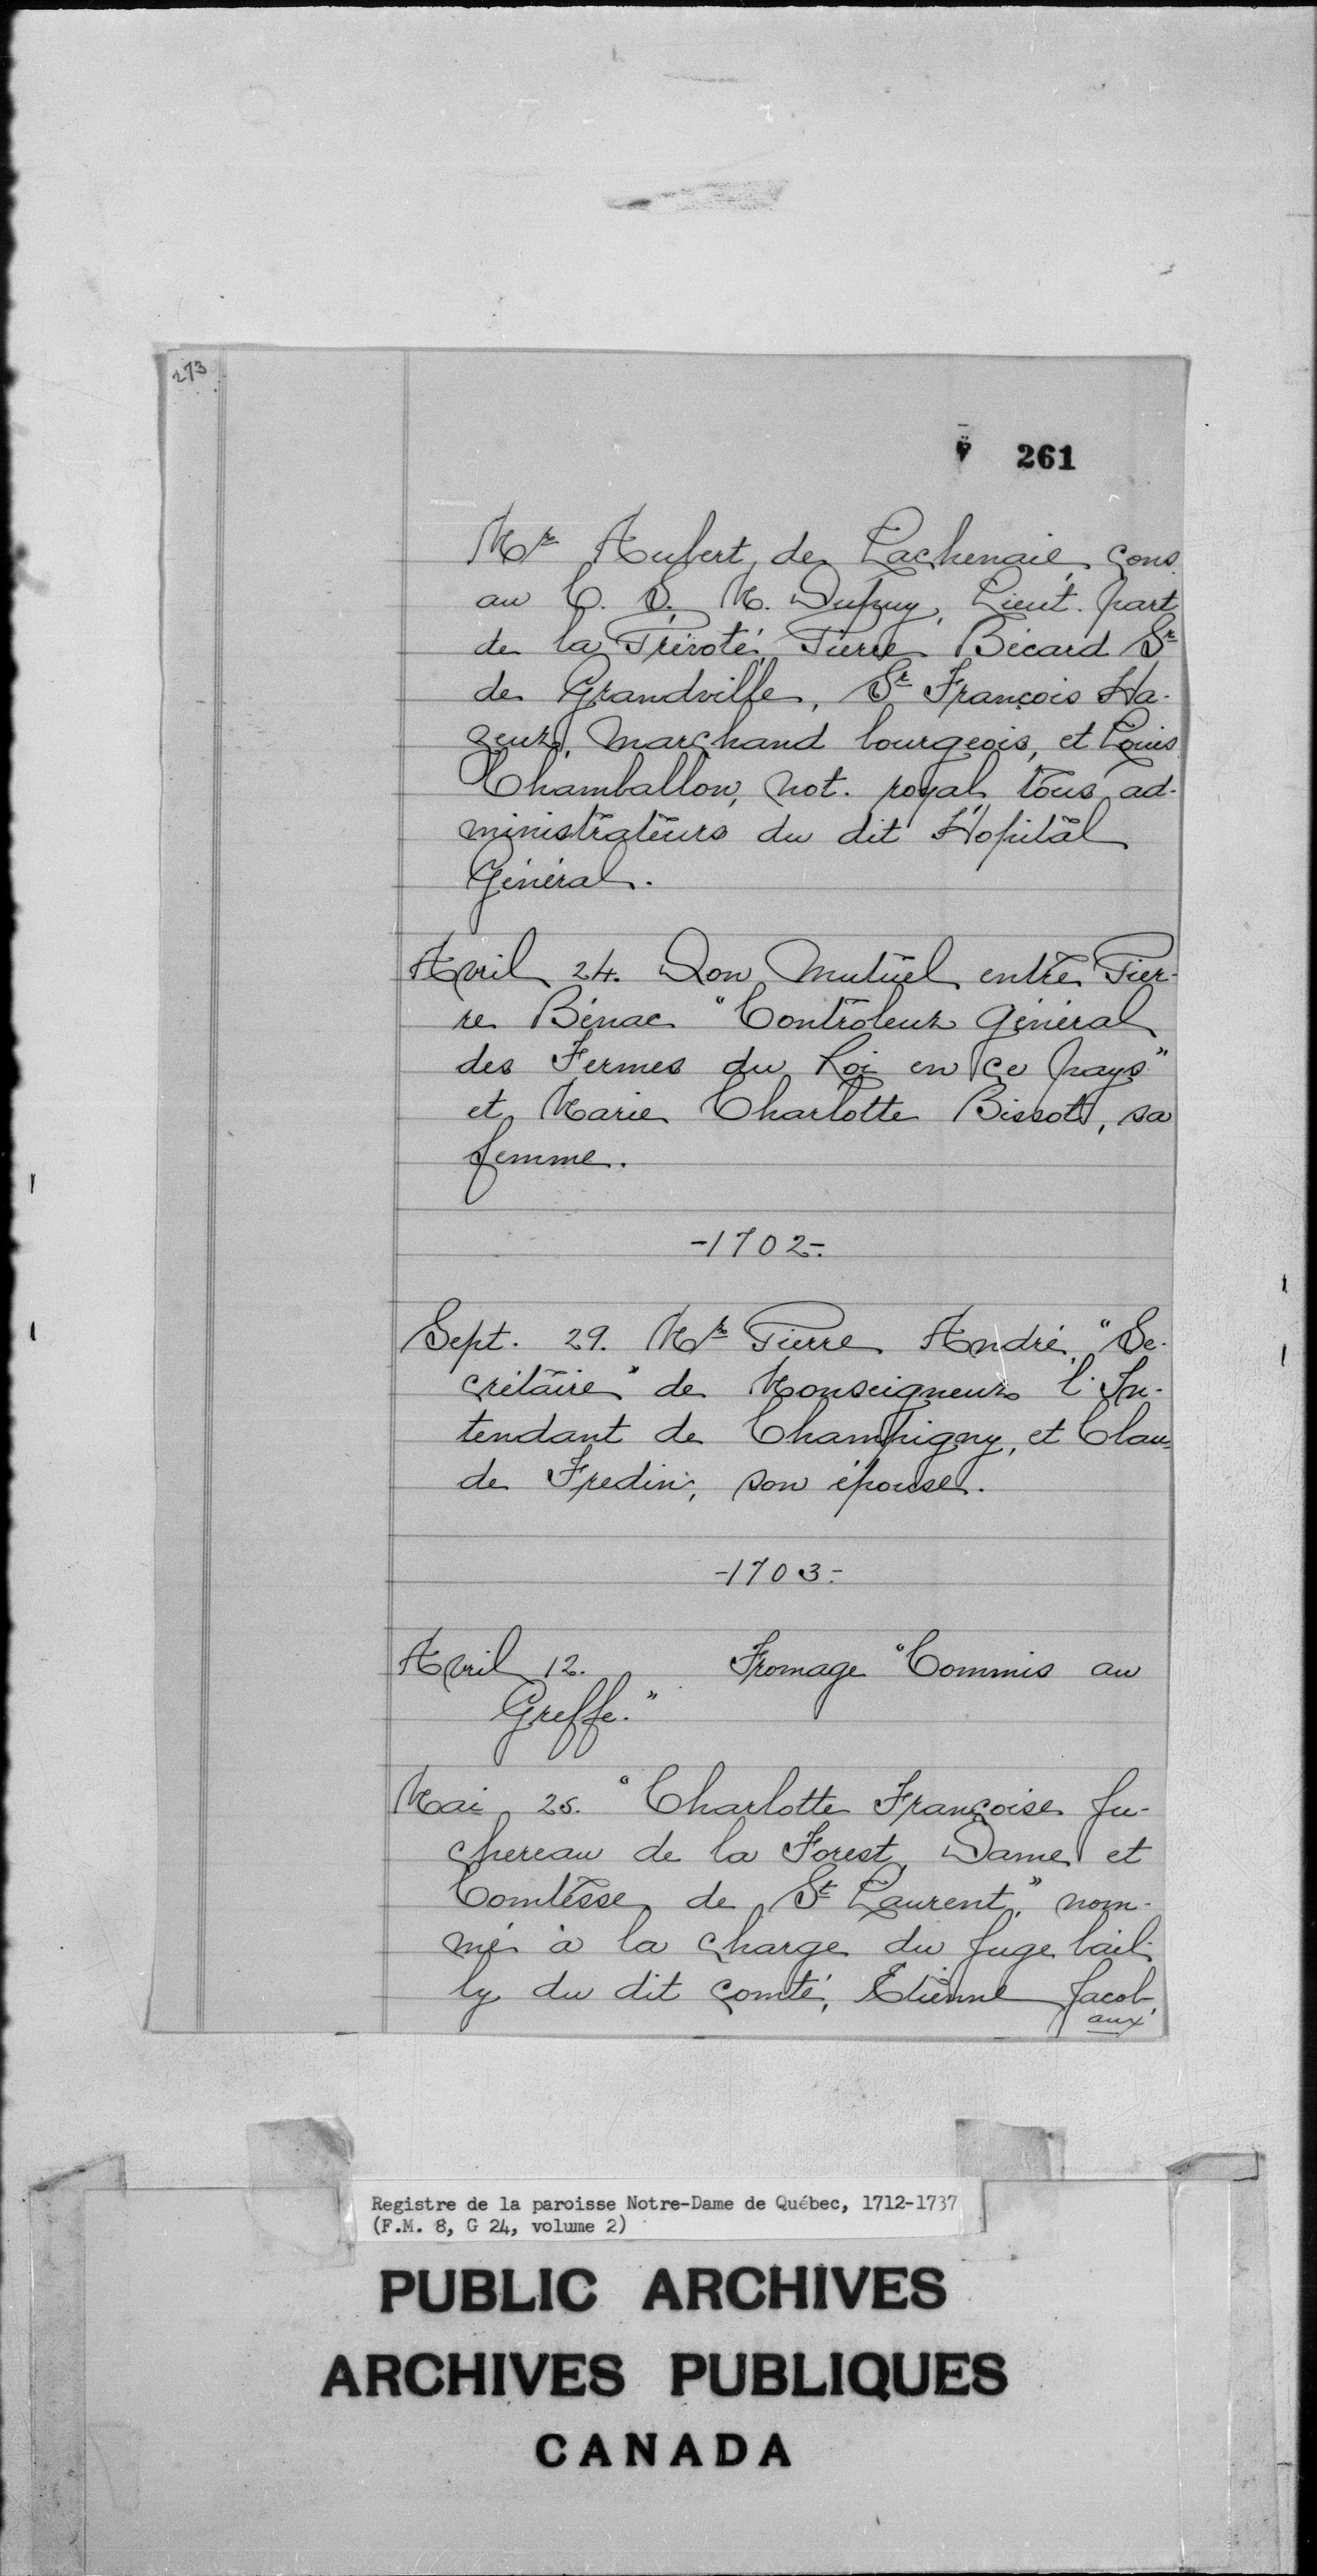 273
261
Mr Aubert de Lachenaie, cons.
au C. S. M. Dupuy, Lieut. part.
de la Prévoté, Pierre Bécard Sr
de Grandville, Sr François Ha-
zeur, marchand bourgeois, et Louis
Chamballon, not. royal, tous ad-
ministrateurs du dit Hopital
Général.
Avril 24. Don Mutuel entre Pier-
re Bénac "Controleur Général
des Fermes du Roi en ce pays"
et Marie Charlotte Bissot, sa
femme.
-1702-
Sept. 29. Mr Pierre André, "Se-
crétaire" de Monseigneur l'In-
tendant de Champigny, et Clau-
de Fredin, son épouse.
-1703-
Avril 12. Fromage "Commis au
Greffe."
Mai 25. "Charlotte Françoise Ju-
chereau de la Forest, Dame et
Comtesse de St Laurent," nom-
mé à la charge du Juge bail-
ly du dit comté, Etienne Jacob,
aux
Registre de la paroisse Notre-Dame de Québec, 1712-1737
(F.M. 8, G 24, volume 2)
PUBLIC ARCHIVES
ARCHIVES PUBLIQUES
CANADA